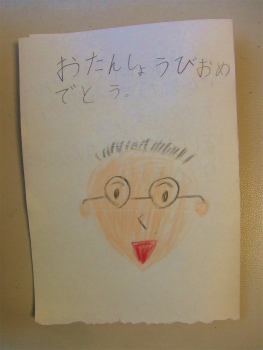 おたんしょうびおめ
でとう。